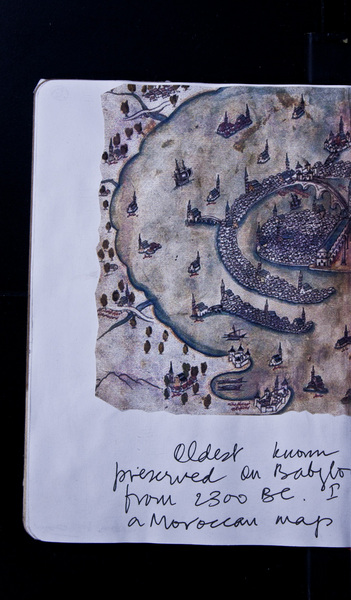 Oldest known
preserved on Babylo
from 2300 BC. I
a Moroccan map